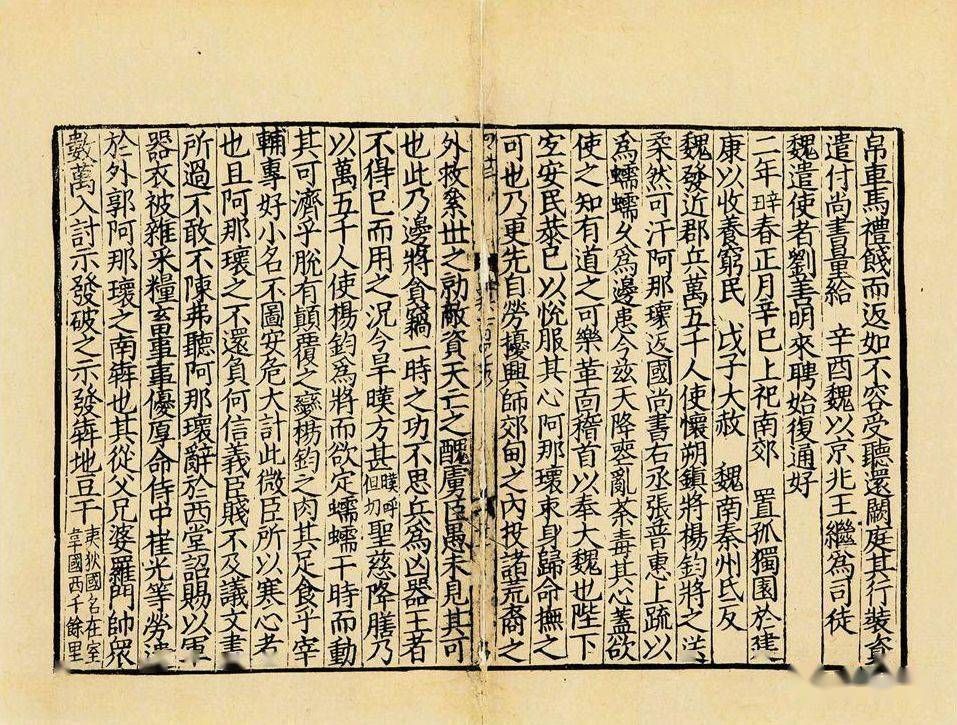 帛車馬禮餞而返如不容受聽還闕庭其行裝資
遣付尚書量給 辛酉魏以京兆王繼爲司徒
魏遣使者劉善明來聘始復通好
二年辛丑春正月辛巳上祀南郊 置孤獨園於建
康以收養窮民 戊子大赦 魏南秦州氐反
魏發近郡兵萬五千人使懷朔鎮將楊鈞將之送
柔然可汗阿那瓌返國尚書右丞張普惠上疏以
爲蠕蠕久爲邊患今茲天降喪亂荼毒其心蓋欲
使之知有道之可樂革面稽首以奉大魏也陛下
宜安民恭己以悅服其心阿那瓌束身歸命撫之
可也乃更先自勞擾興師郊甸之內投諸荒裔之
外救累世之勍敵資天亡之醜虜臣愚未見其可
也此乃邊將貪竊一時之功不思兵爲凶器王者
不得已而用之況今旱暵方甚暵呼但切聖慈降膳乃
以萬五千人使楊鈞爲將而欲定蠕蠕干時而動
其可濟乎脫有顛覆之變楊鈞之肉其足食乎宰
輔專好小名不圖安危大計此微臣所以寒心者
也且阿那瓌之不還負何信義臣賤不及議文書
所過不敢不陳弗聽阿那瓌辭於西堂詔賜以軍
器衣被雜采糧畜事事優厚命侍中崔光等勞遣
於外郭阿那瓌之南犇也其從父兄婆羅門帥眾
數萬入討示發破之示發犇地豆干夷狄國名在室韋國西千餘里